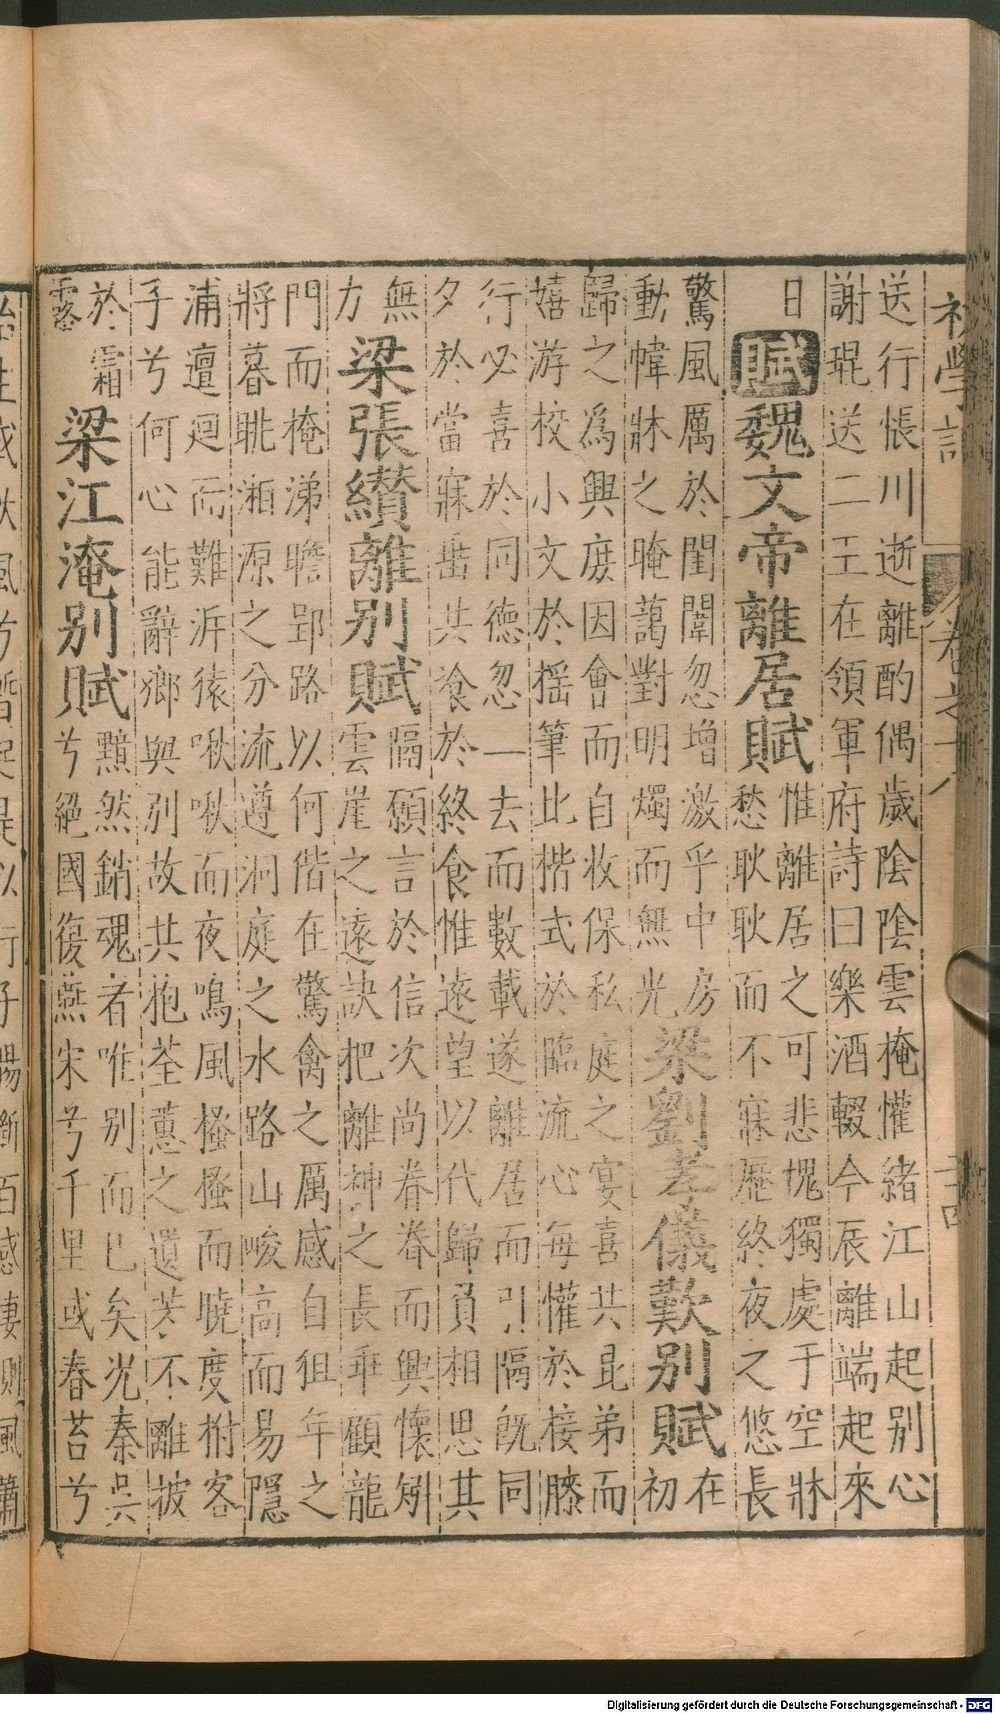 初學記 卷之十八 二十四
送行悵川逝離酌偶歲陰陰雲掩懽緒江山起別心
謝琨送二王在領軍府詩曰樂酒輟今辰離端起來
日
賦魏文帝離居賦
惟離居之可悲塊獨處于空牀
愁耿耿而不寐歷終夜之悠長
驚風厲於閨闥忽增激乎中房
動幃牀之晻藹對明燭而無光
梁劉孝儀歎別賦
在
初
歸之爲興庻因會而自收保私庭之宴喜共昆弟而
嬉游校小文於搖筆比楷式於臨流心每懽於接膝
行必喜於同德忽一去而數載遂離居而引隔旣同
夕於當寐毎共飡於終食惟遠望以代歸負相思其
無
力
梁張纘離別賦
隔願言於信次尚眷眷而興懷矧
雲崖之遠訣把離神之長乖顧龍
門而掩涕瞻郢路以何偕在驚禽之厲感自徂年之
將暮眺湘源之分流遵洞庭之水路山峻高而易隱
浦邅迴而難泝猿啾啾而夜鳴風搔搔而曉度柎客
子兮何心能辭鄉與別故共抱荃蕙之遺芳不離披
於霜
露
梁江淹別賦
黯然銷魂者唯別而已矣況秦吳
兮絕國復燕宋兮千里或春苔兮
始生或秋風兮蹔起是以行子腸斷百感悽惻風蕭
Digitalisierung gefördert durch die Deutsche Forschungsgemeinschaft - DFG